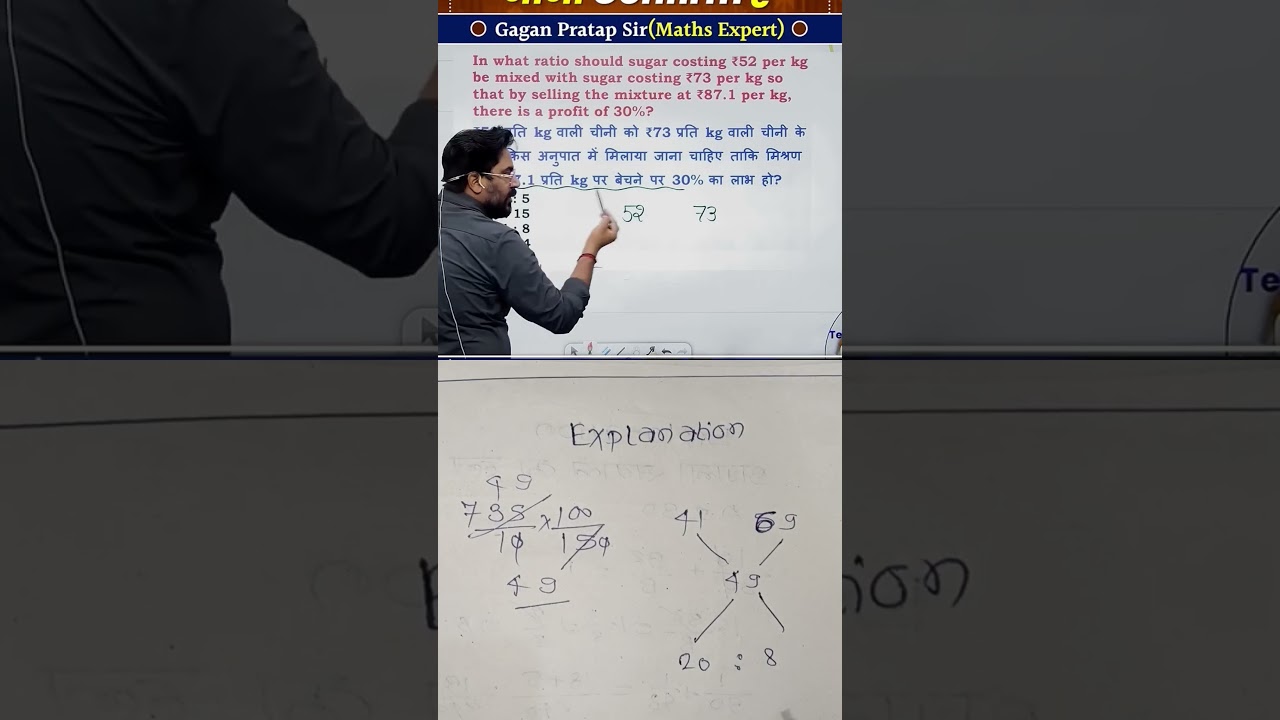 Gagan Pratap Sir(Maths Expert)
In what ratio should sugar costing ₹52 per kg
be mixed with sugar costing ₹73 per kg so
that by selling the mixture at ₹87.1 per kg,
there is a profit of 30%?
प्रति kg वाली चीनी को ₹73 प्रति kg वाली चीनी के
किस अनुपात में मिलाया जाना चाहिए ताकि मिश्रण
.1 प्रति kg पर बेचने पर 30% का लाभ हो?
: 5
15
: 8
4
52 73
Te
Te
Explanation
49
735/10 × 100/150
49
41 69
49
20 : 8